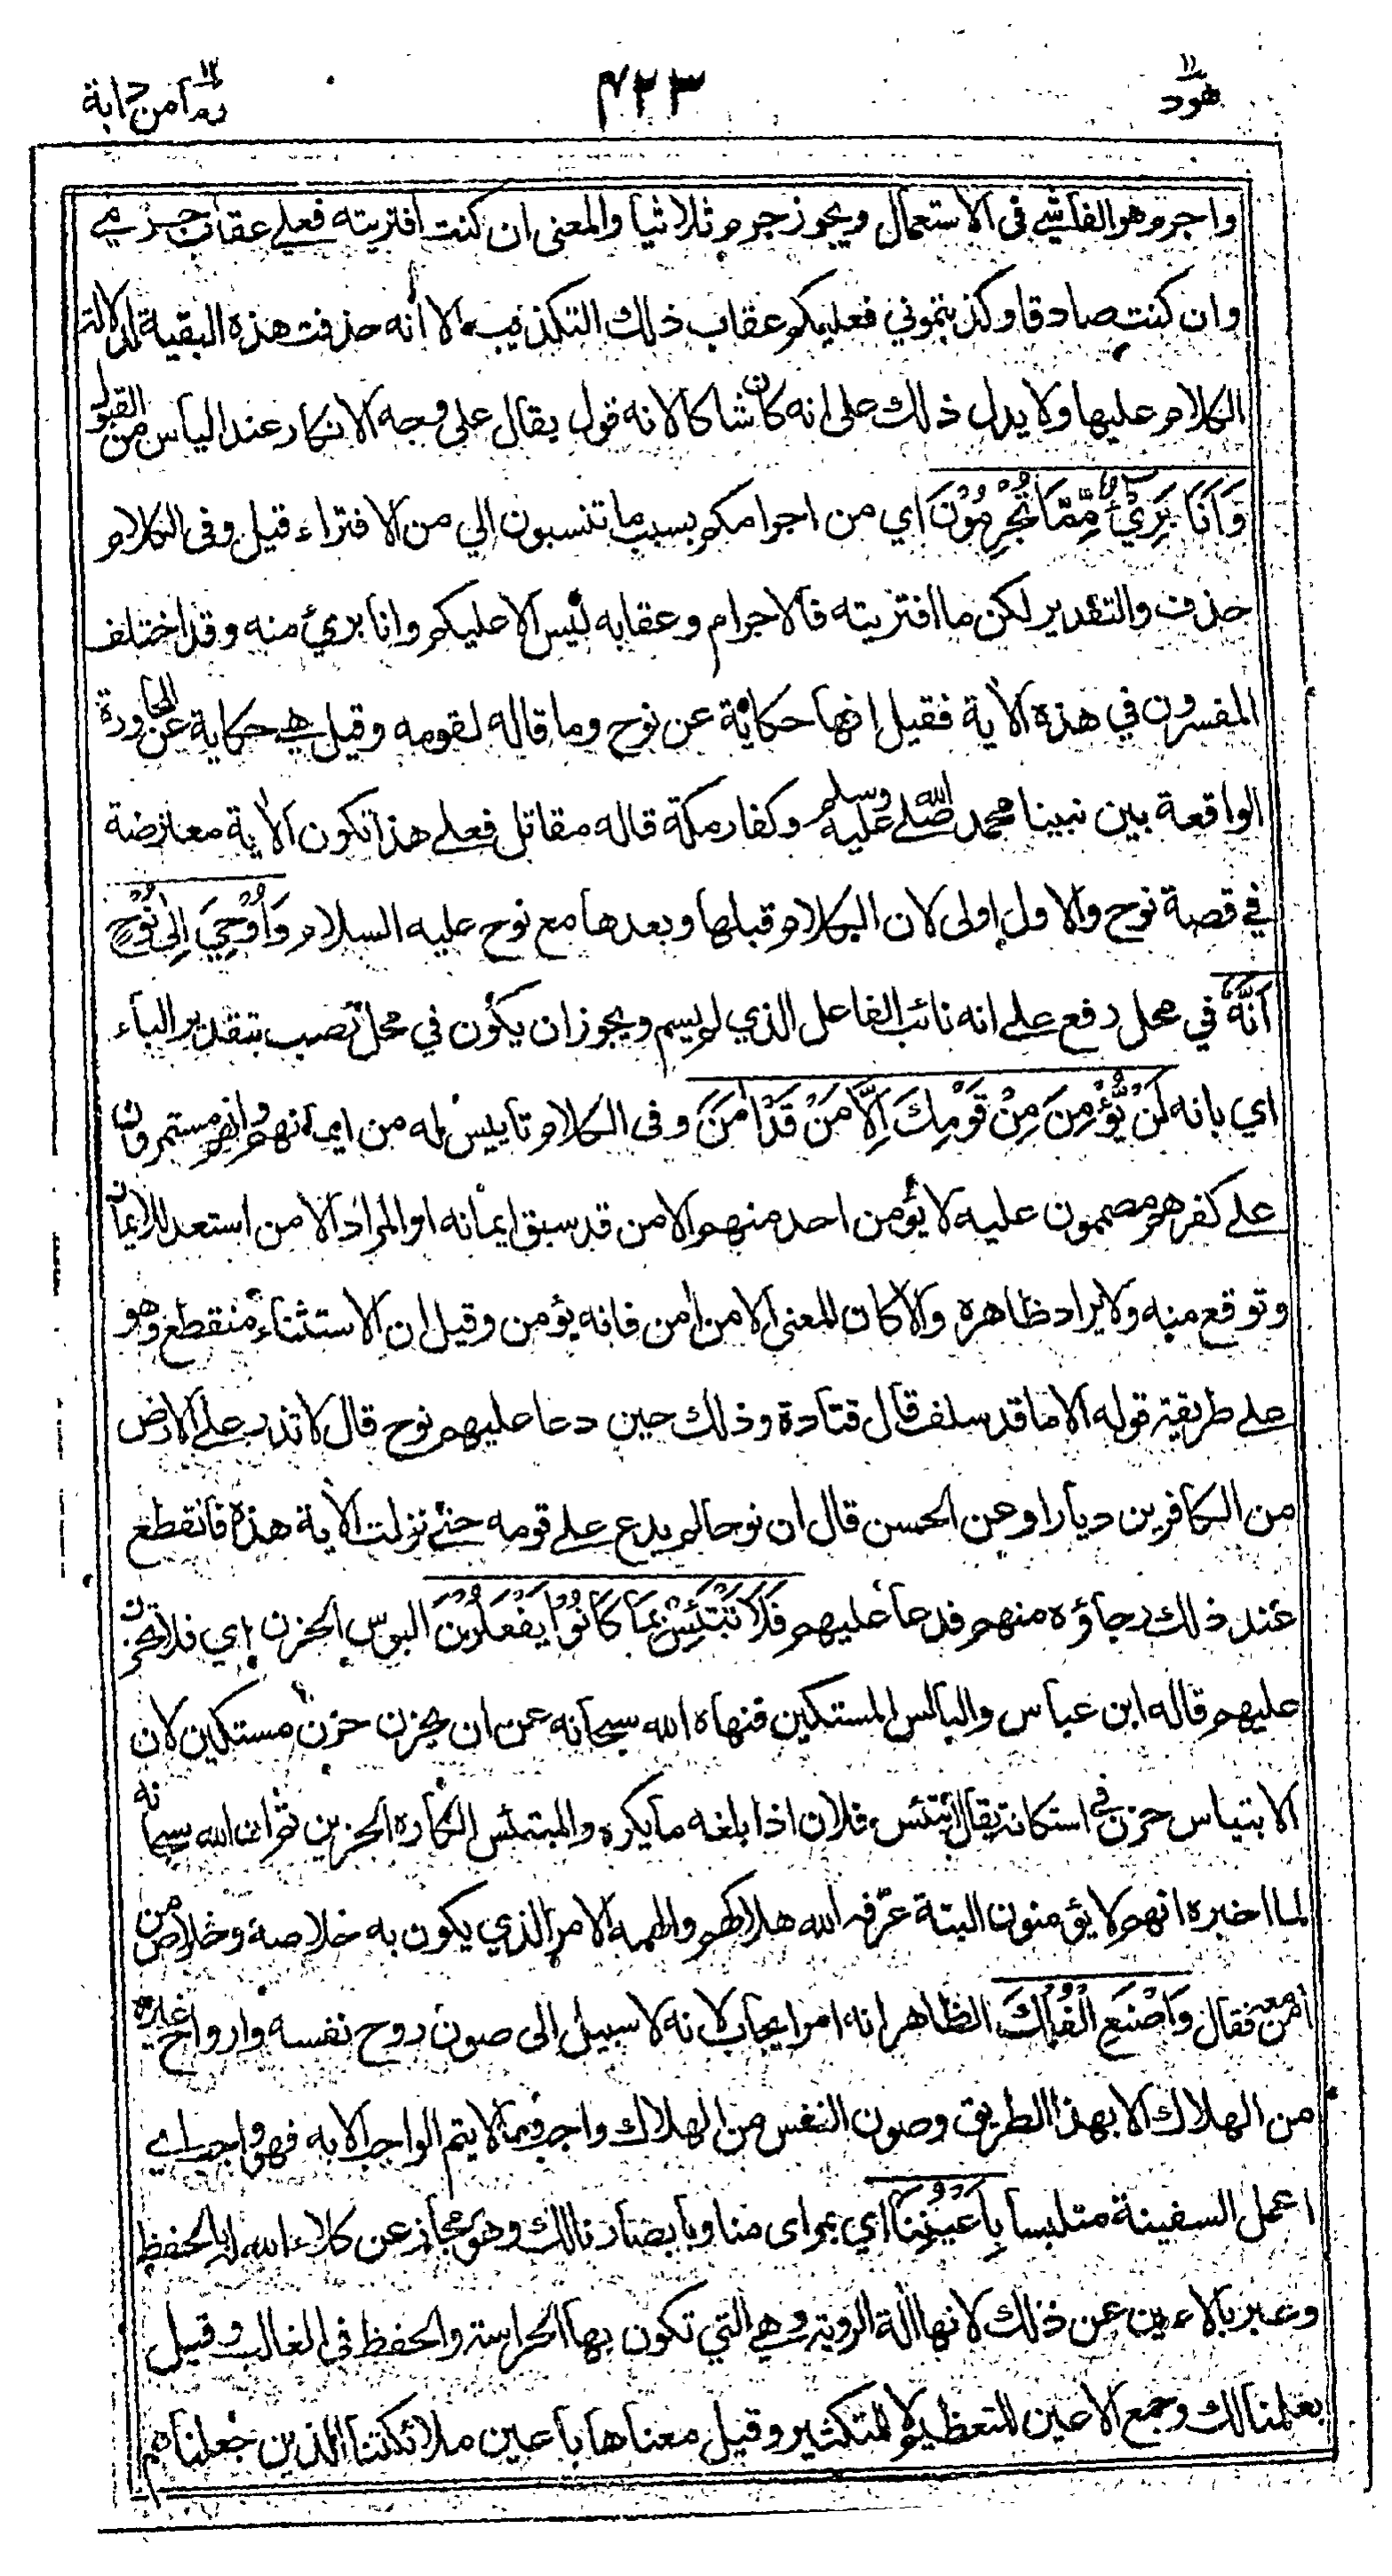 هود ١١
٤٢٣
ومامن دابة ١٢
واجرم وهو الفاشي في الاستعمال ويجوز جرم ثلاثيا والمعنى ان كنت افتريته فعلي عقاب جرمي
وان كنت صادقا وكذبتموني فعليكم عقاب ذلك التكذيب الا انه حذفت هذه البقية لدلالة
الكلام عليها ولا يدل ذلك على انه كان شاكا لانه قول يقال على وجه الانكار عند الياس من القبول
وَاَنَا بَرِيْٓءٌ مِّمَّا تُجْرِمُوْنَ اي من اجرامكم بسبب ما تنسبون الي من الافتراء قيل وفي الكلام
حذف والتقدير لكن ما افتريته فالاجرام وعقابه ليس الا عليكم وانا بريئ منه وقد اختلف
المفسرون في هذه الاية فقيل انها حكاية عن نوح وما قاله لقومه وقيل هي حكاية عن المحاورة
الواقعة بين نبينا محمد صلى الله عليه وسلم وكفار مكة قاله مقاتل فعلى هذا تكون الاية معترضة
في قصة نوح والاول اولى لان الكلام قبلها وبعدها مع نوح عليه السلام وَاُوْحِيَ اِلٰى نُوْحٍ
اَنَّهٗ في محل رفع على انه نائب الفاعل الذي لم يسم ويجوز ان يكون في محل نصب بتقدير الباء
اي بانه لَنْ يُّؤْمِنَ مِنْ قَوْمِكَ اِلَّا مَنْ قَدْ اٰمَنَ وفي الكلام تاييس له من ايمانهم وانهم مستمرون
على كفرهم مصممون عليه لا يؤمن احد منهم الا من قد سبق ايمانه او المراد الا من استعد للايمان
وتوقع منه ولا يراد ظاهره والا كان المعنى الا من امن فانه يؤمن وقيل ان الاستثناء منقطع وهو
على طريقة قوله الا ما قد سلف قال قتادة وذلك حين دعا عليهم نوح قال لا تذر على الارض
من الكافرين ديارا وعن الحسن قال ان نوحا لم يدع على قومه حتى نزلت الاية هذه فانقطع
عند ذلك رجاؤه منهم فدعا عليهم فَلَا تَبْتَئِسْ بِمَا كَانُوْا يَفْعَلُوْنَ البوس الحزن اي فلا تحزن
عليهم قاله ابن عباس والبائس المستكين فنهاه الله سبحانه عن ان يحزن حزن مستكين لان
الابتياس حزن في استكانة يقال ابتئس فلان اذا بلغه ما يكره والمبتئس الكاره الحزين ثم ان الله سبحانه
لما اخبره انهم لا يؤمنون البتة عرّفه الله هلاكهم والهمه الامر الذي يكون به خلاصه وخلاص من
امن معه فقال وَاصْنَعِ الْفُلْكَ الظاهر انه امر ايجاب لانه لا سبيل الى صون روح نفسه وارواح غيره
من الهلاك الا بهذا الطريق وصون النفس من الهلاك واجب وما لا يتم الواجب الا به فهو واجب اي
اعمل السفينة متلبسا بِاَعْيُنِنَا اي بمراى منا وبابصارنا لك وهو مجاز عن كلاءة الله له بالحفظ
وعبر بالاعين عن ذلك لانها الة الروية وهي التي تكون بها الحراسة والحفظ في الغالب وقيل
بعلمنا لك وجمع الاعين للتعظيم لا للتكثير وقيل معناها باعين ملائكتنا الذين جعلناهم